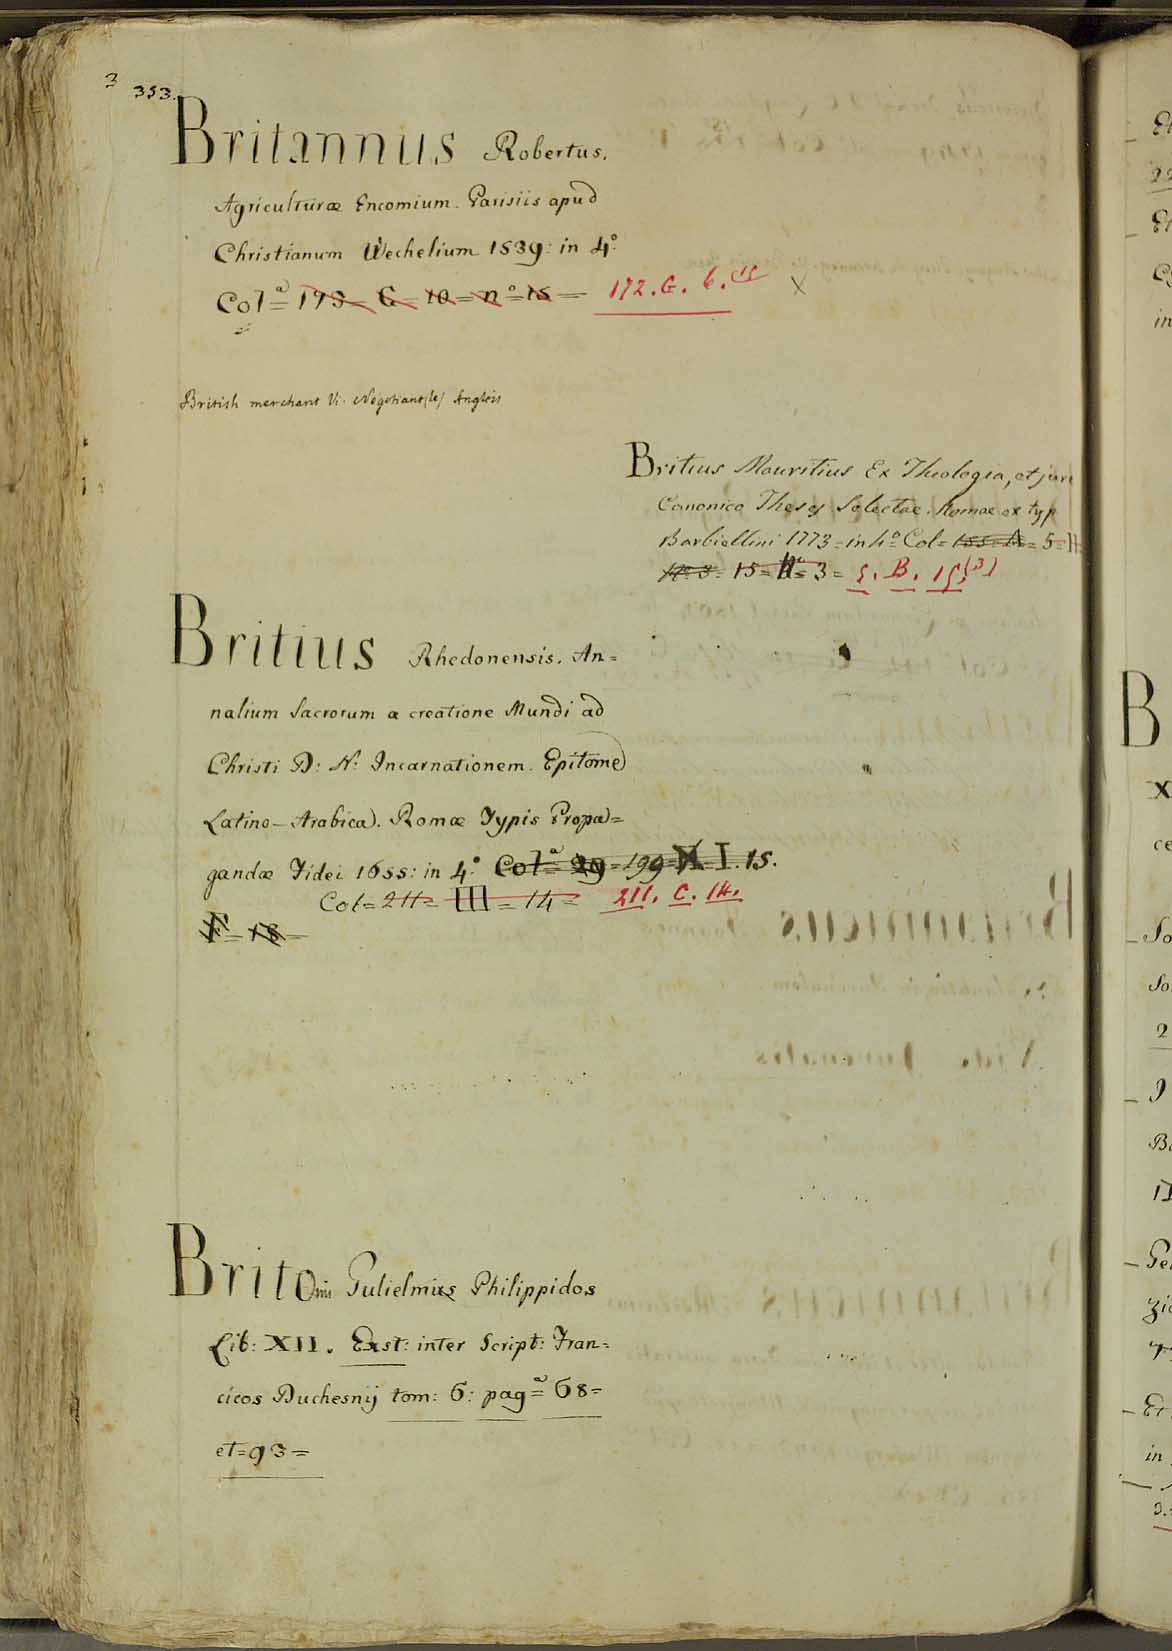 3 353.
Britannus Robertus.
Agriculturæ Encomium. Parisiis apud
Christianum Wechelium 1539: in 4.°
Col.ª = 193 = G = 10 = n.° = 15 = 172. G. 6. 15 X
British merchant Vi. Negotiant (le) Anglois
Britius Mauritius Ex Theologia, et jure
Canonico Theses Selectae. Romae ex typ
Barbiellini 1773 = in 4.° Col = 155 = A = 5 =
N.° 3 = 15 = N.° = 3 = 5. B. 15. (3)
Britius Rhedonensis. An=
nalium Sacrorum a creatione Mundi ad
Christi D: N: Incarnationem. Epitome
Latino-Arabica. Romæ Typis Propa=
gandæ Fidei 1655: in 4.° Col.ª = 29 = 199 = XI. 15.
Col = 211 = III = 14 = 211. C. 14.
F = 18 =
Britonis Gulielmus Philippidos
Lib: XII. Exst: inter Script: Fran=
cicos Duchesnij tom: 6: pag.ª = 68=
et = 93 =